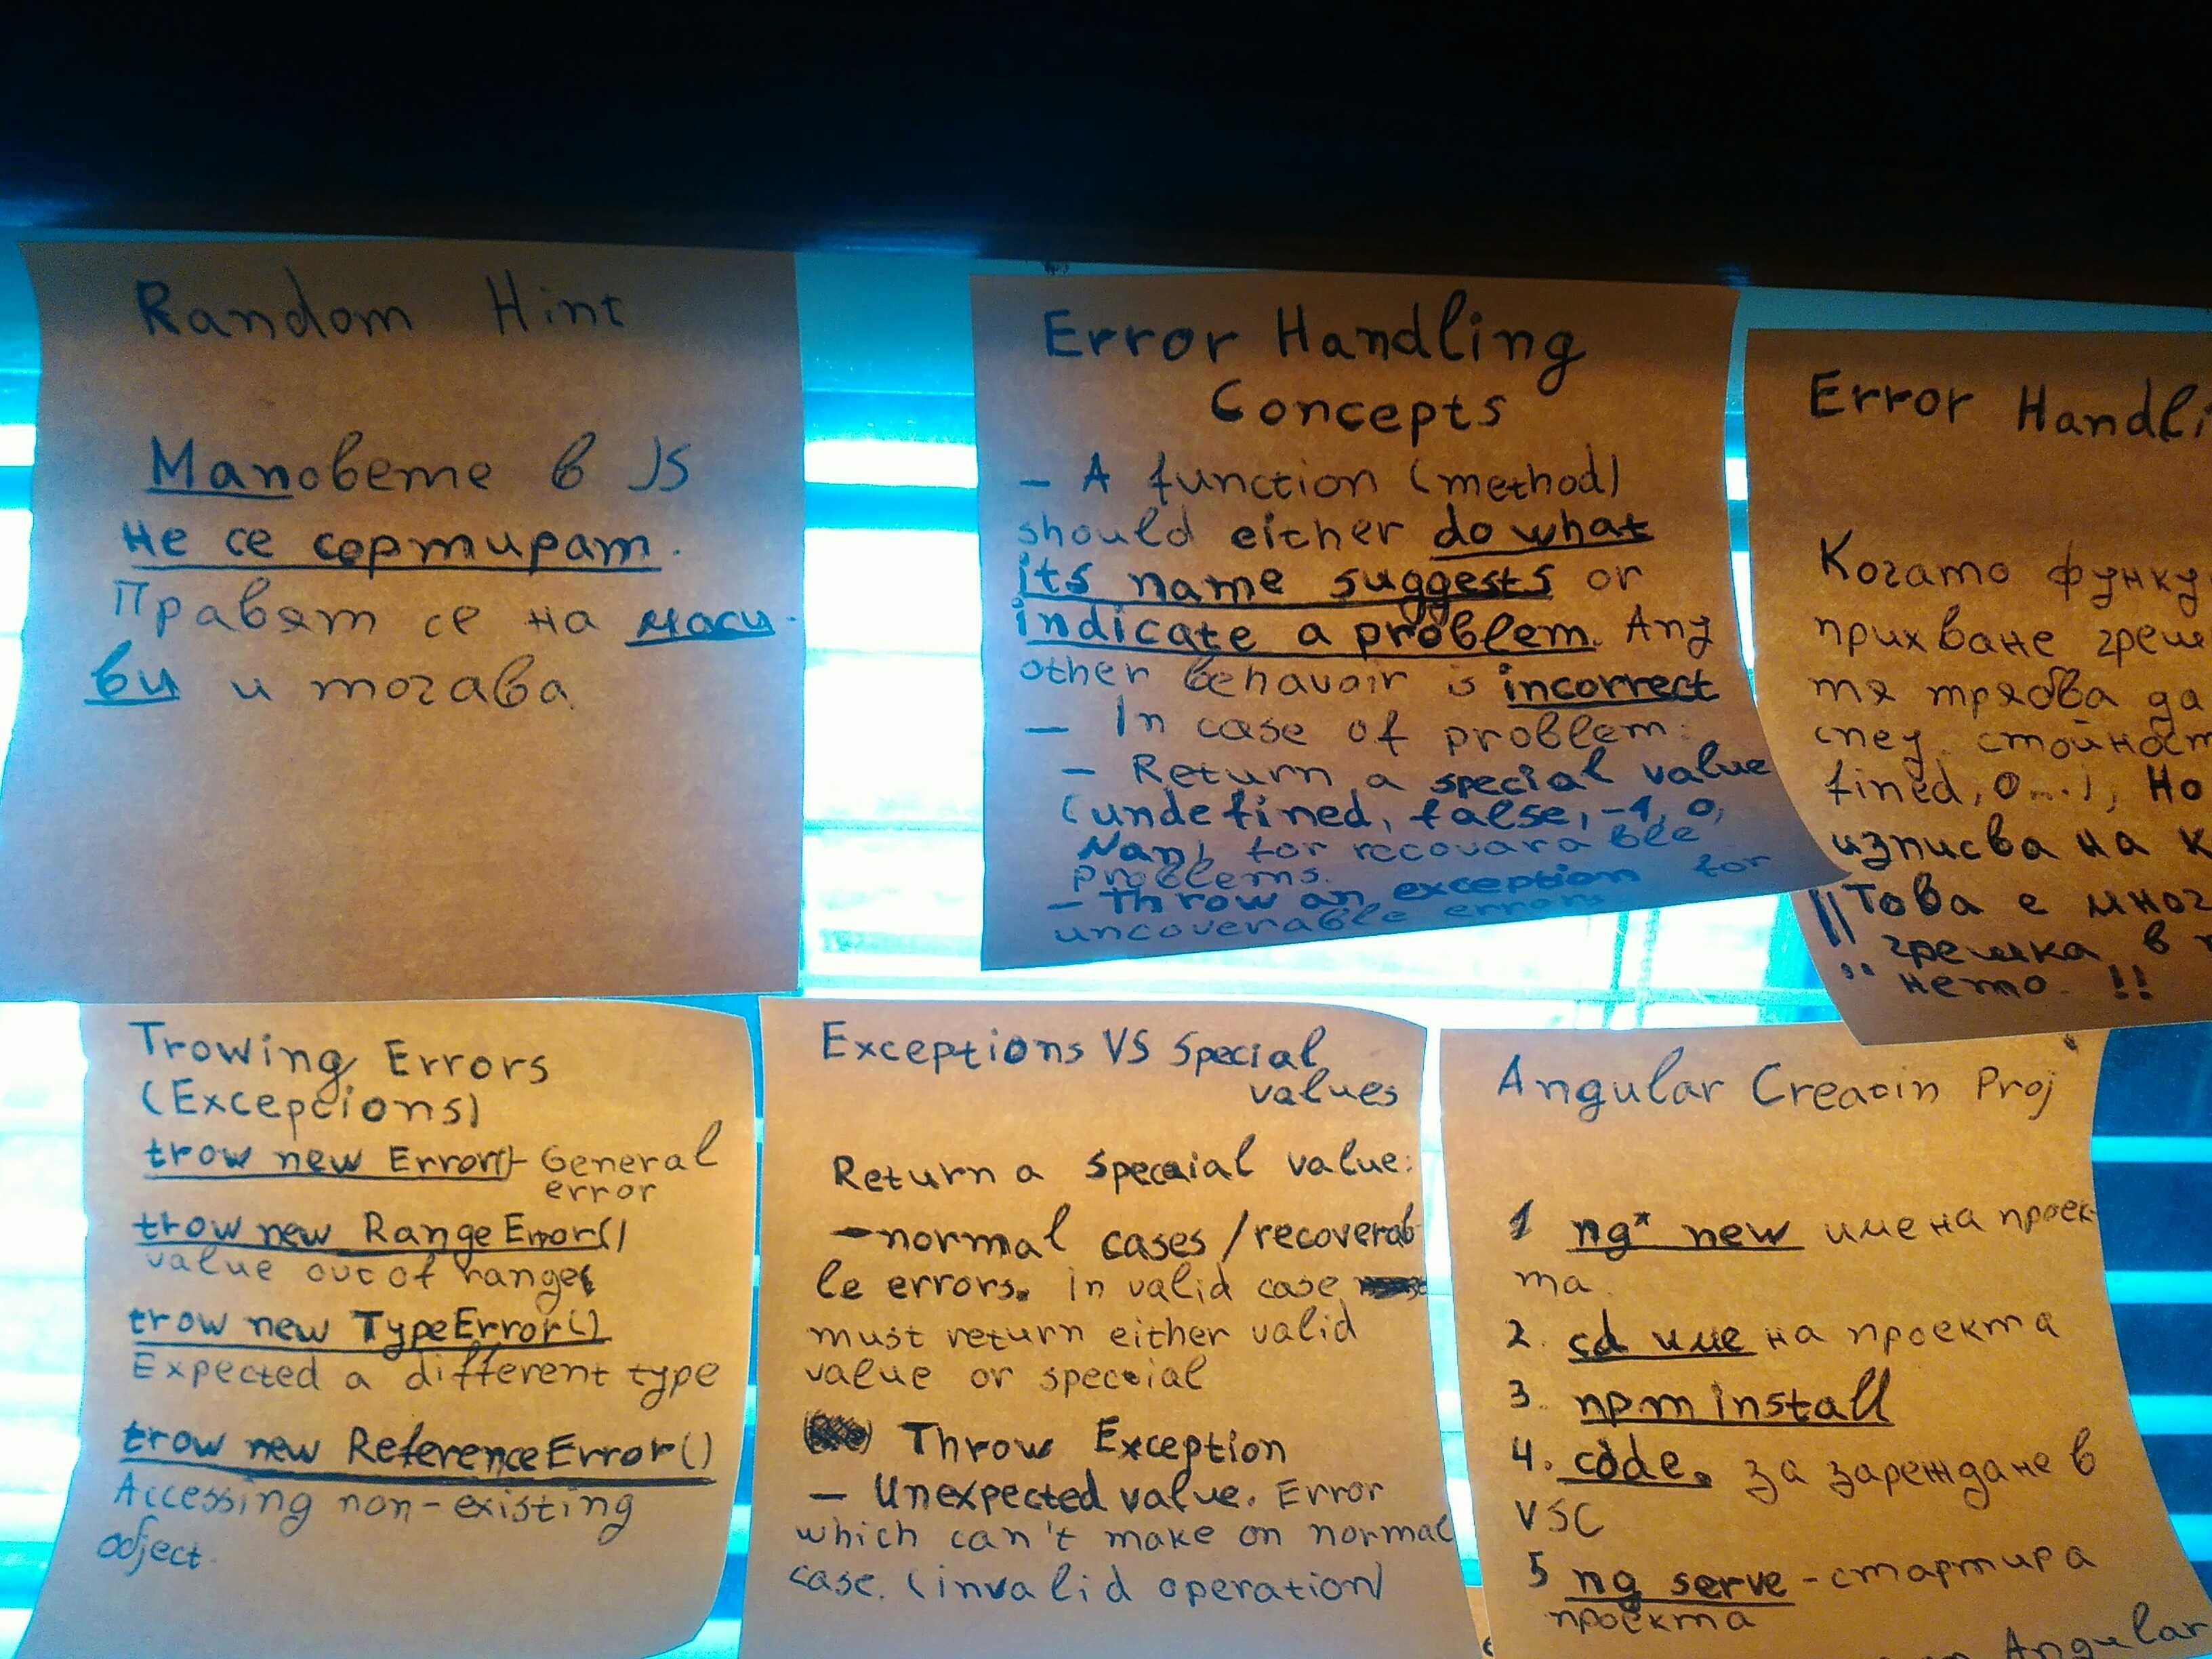 Random Hint
Маповете в JS
не се сортират.
Правят се на маси-
ви и тогава.
Error Handling
Concepts
- A function (method)
should either do what
its name suggests or
indicate a problem. Any
other behavair is incorrect
- In case of problem:
- Return a special value
(undefined, false, -1, 0,
NaN) for recovarable
problems.
- Throw an exception for
uncoverable errors
Error Handli
Когато функц
прихване греш
тя трябва да
спец. стойност
fined, 0...), Но
изписва на к
!! Това е мног
грешка в
нето. !!
Trowing Errors
(Excepcions)
trow new Error() - General
error
trow new RangeError()
value out of range
trow new TypeError()
Expected a different type
trow new ReferenceError()
Accessing non-existing
object.
Exceptions VS Special
values
Return a specaial value:
- normal cases / recoverab
le errors. in valid case
must return either valid
value or special
Throw Exception
- Unexpected value. Error
which can't make on normal
case. (invalid operation)
Angular Creatin Proj
1 ng* new име на проек-
та.
2. cd име на проекта
3. npm install
4. code . за зареждане в
VSC
5 ng serve - стартира
проекта
Angular